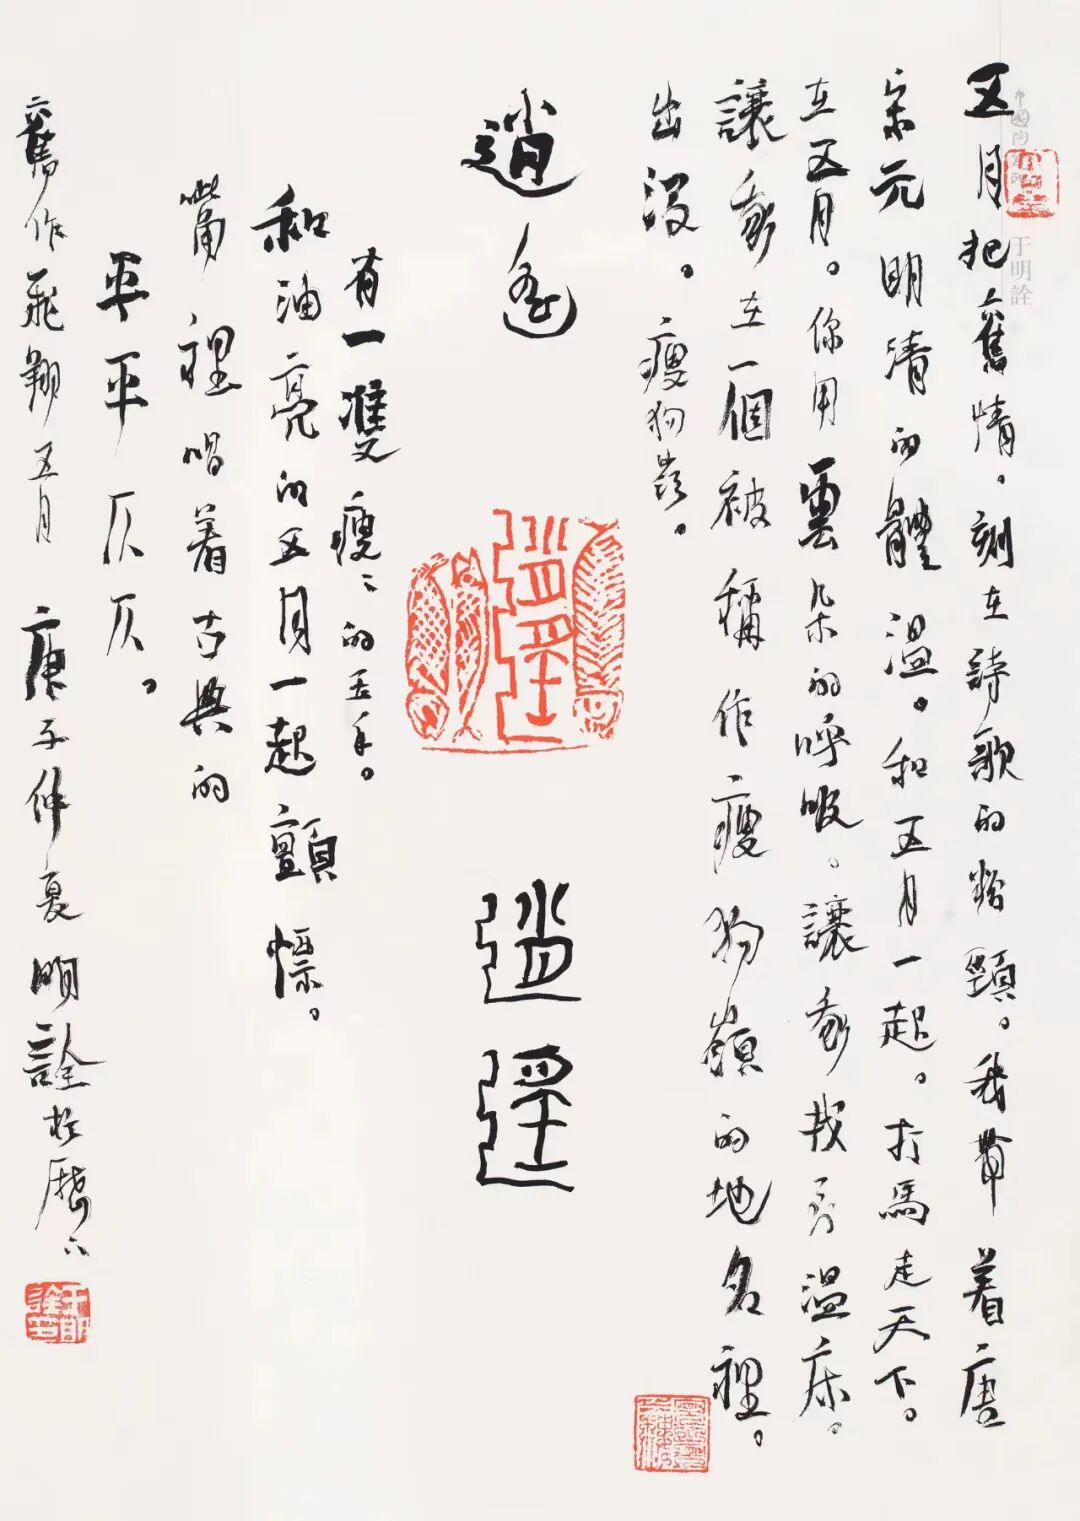 于明詮
五月把舊情。刻在詩歌的粉頸。我帶着唐
宋元明清的體溫。和五月一起。打馬走天下。
在五月。你用雲朵的呼吸。讓我找尋溫床。
讓我在一個被稱作瘦狗嶺的地名裡。
出沒。瘦狗嶺。
逍遙
逍遙
逍遙
有一雙瘦〻的玉手。
和油亮的五月一起顫慄。
嘴裡唱着古典的
平平仄仄。
舊作飛翔五月 庚子仲夏 明詮於歷下